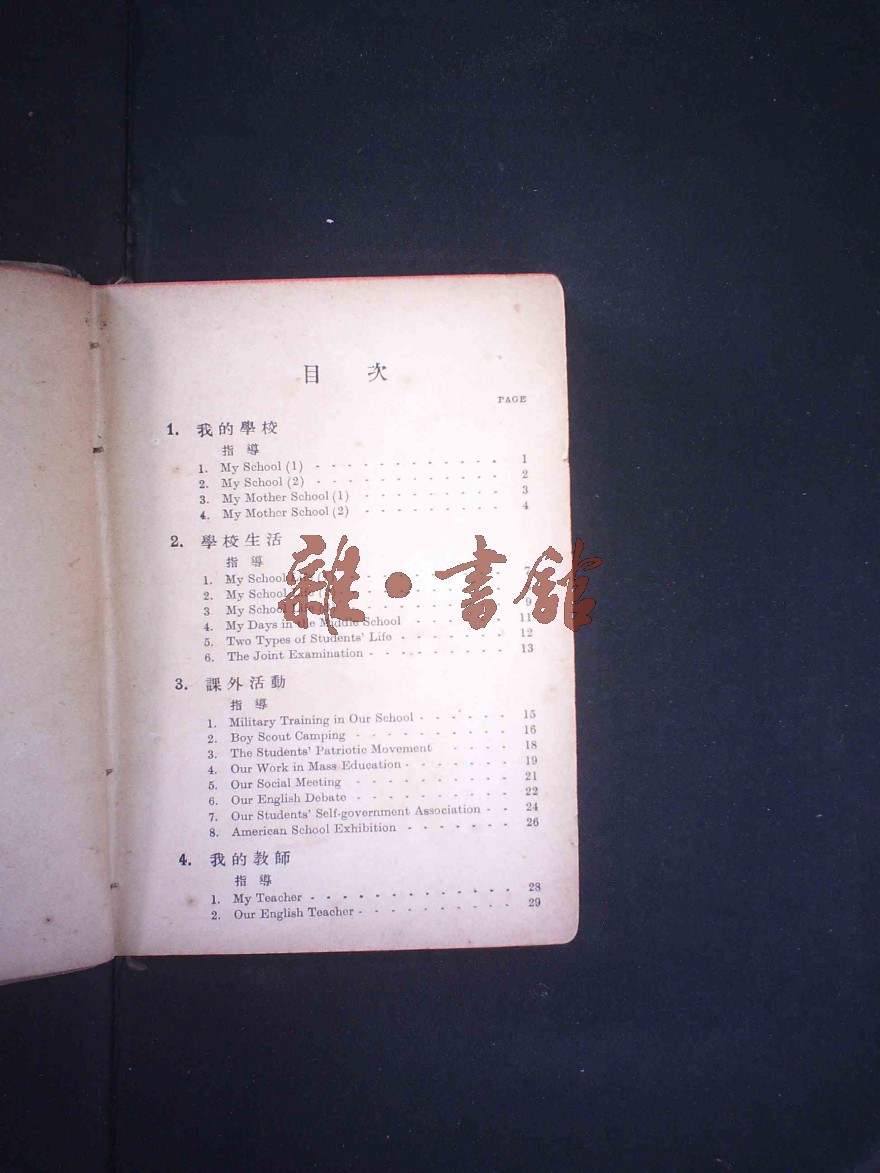 目 次
PAGE
1. 我的學校
指 導
1. My School (1) - - - - - - - - - - - - 1
2. My School (2) - - - - - - - - - - - - 2
3. My Mother School (1) - - - - - - - - - 3
4. My Mother School (2) - - - - - - - - - 4
2. 學校生活
指 導
1. My School Life - - - - - - - 7
2. My School Life - - - - - - -
3. My School Life - - - - - - - 9
4. My Days in the Middle School - - - - - - 11
5. Two Types of Students' Life - - - - - - - 12
6. The Joint Examination - - - - - - - - - 13
雜·書館
3. 課外活動
指 導
1. Military Training in Our School - - - - - - 15
2. Boy Scout Camping - - - - - - - - - - 16
3. The Students' Patriotic Movement - - - - 18
4. Our Work in Mass Education - - - - - - - 19
5. Our Social Meeting - - - - - - - - - - 21
6. Our English Debate - - - - - - - - - - 22
7. Our Students' Self-government Association - - 24
8. American School Exhibition - - - - - - 26
4. 我的教師
指 導
1. My Teacher - - - - - - - - - - - - 28
2. Our English Teacher - - - - - - - - - - 29